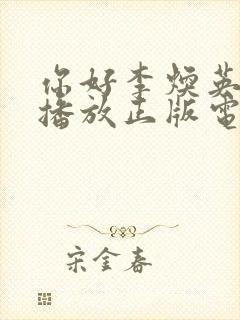 你好李焕英
播放正版電
宋金春